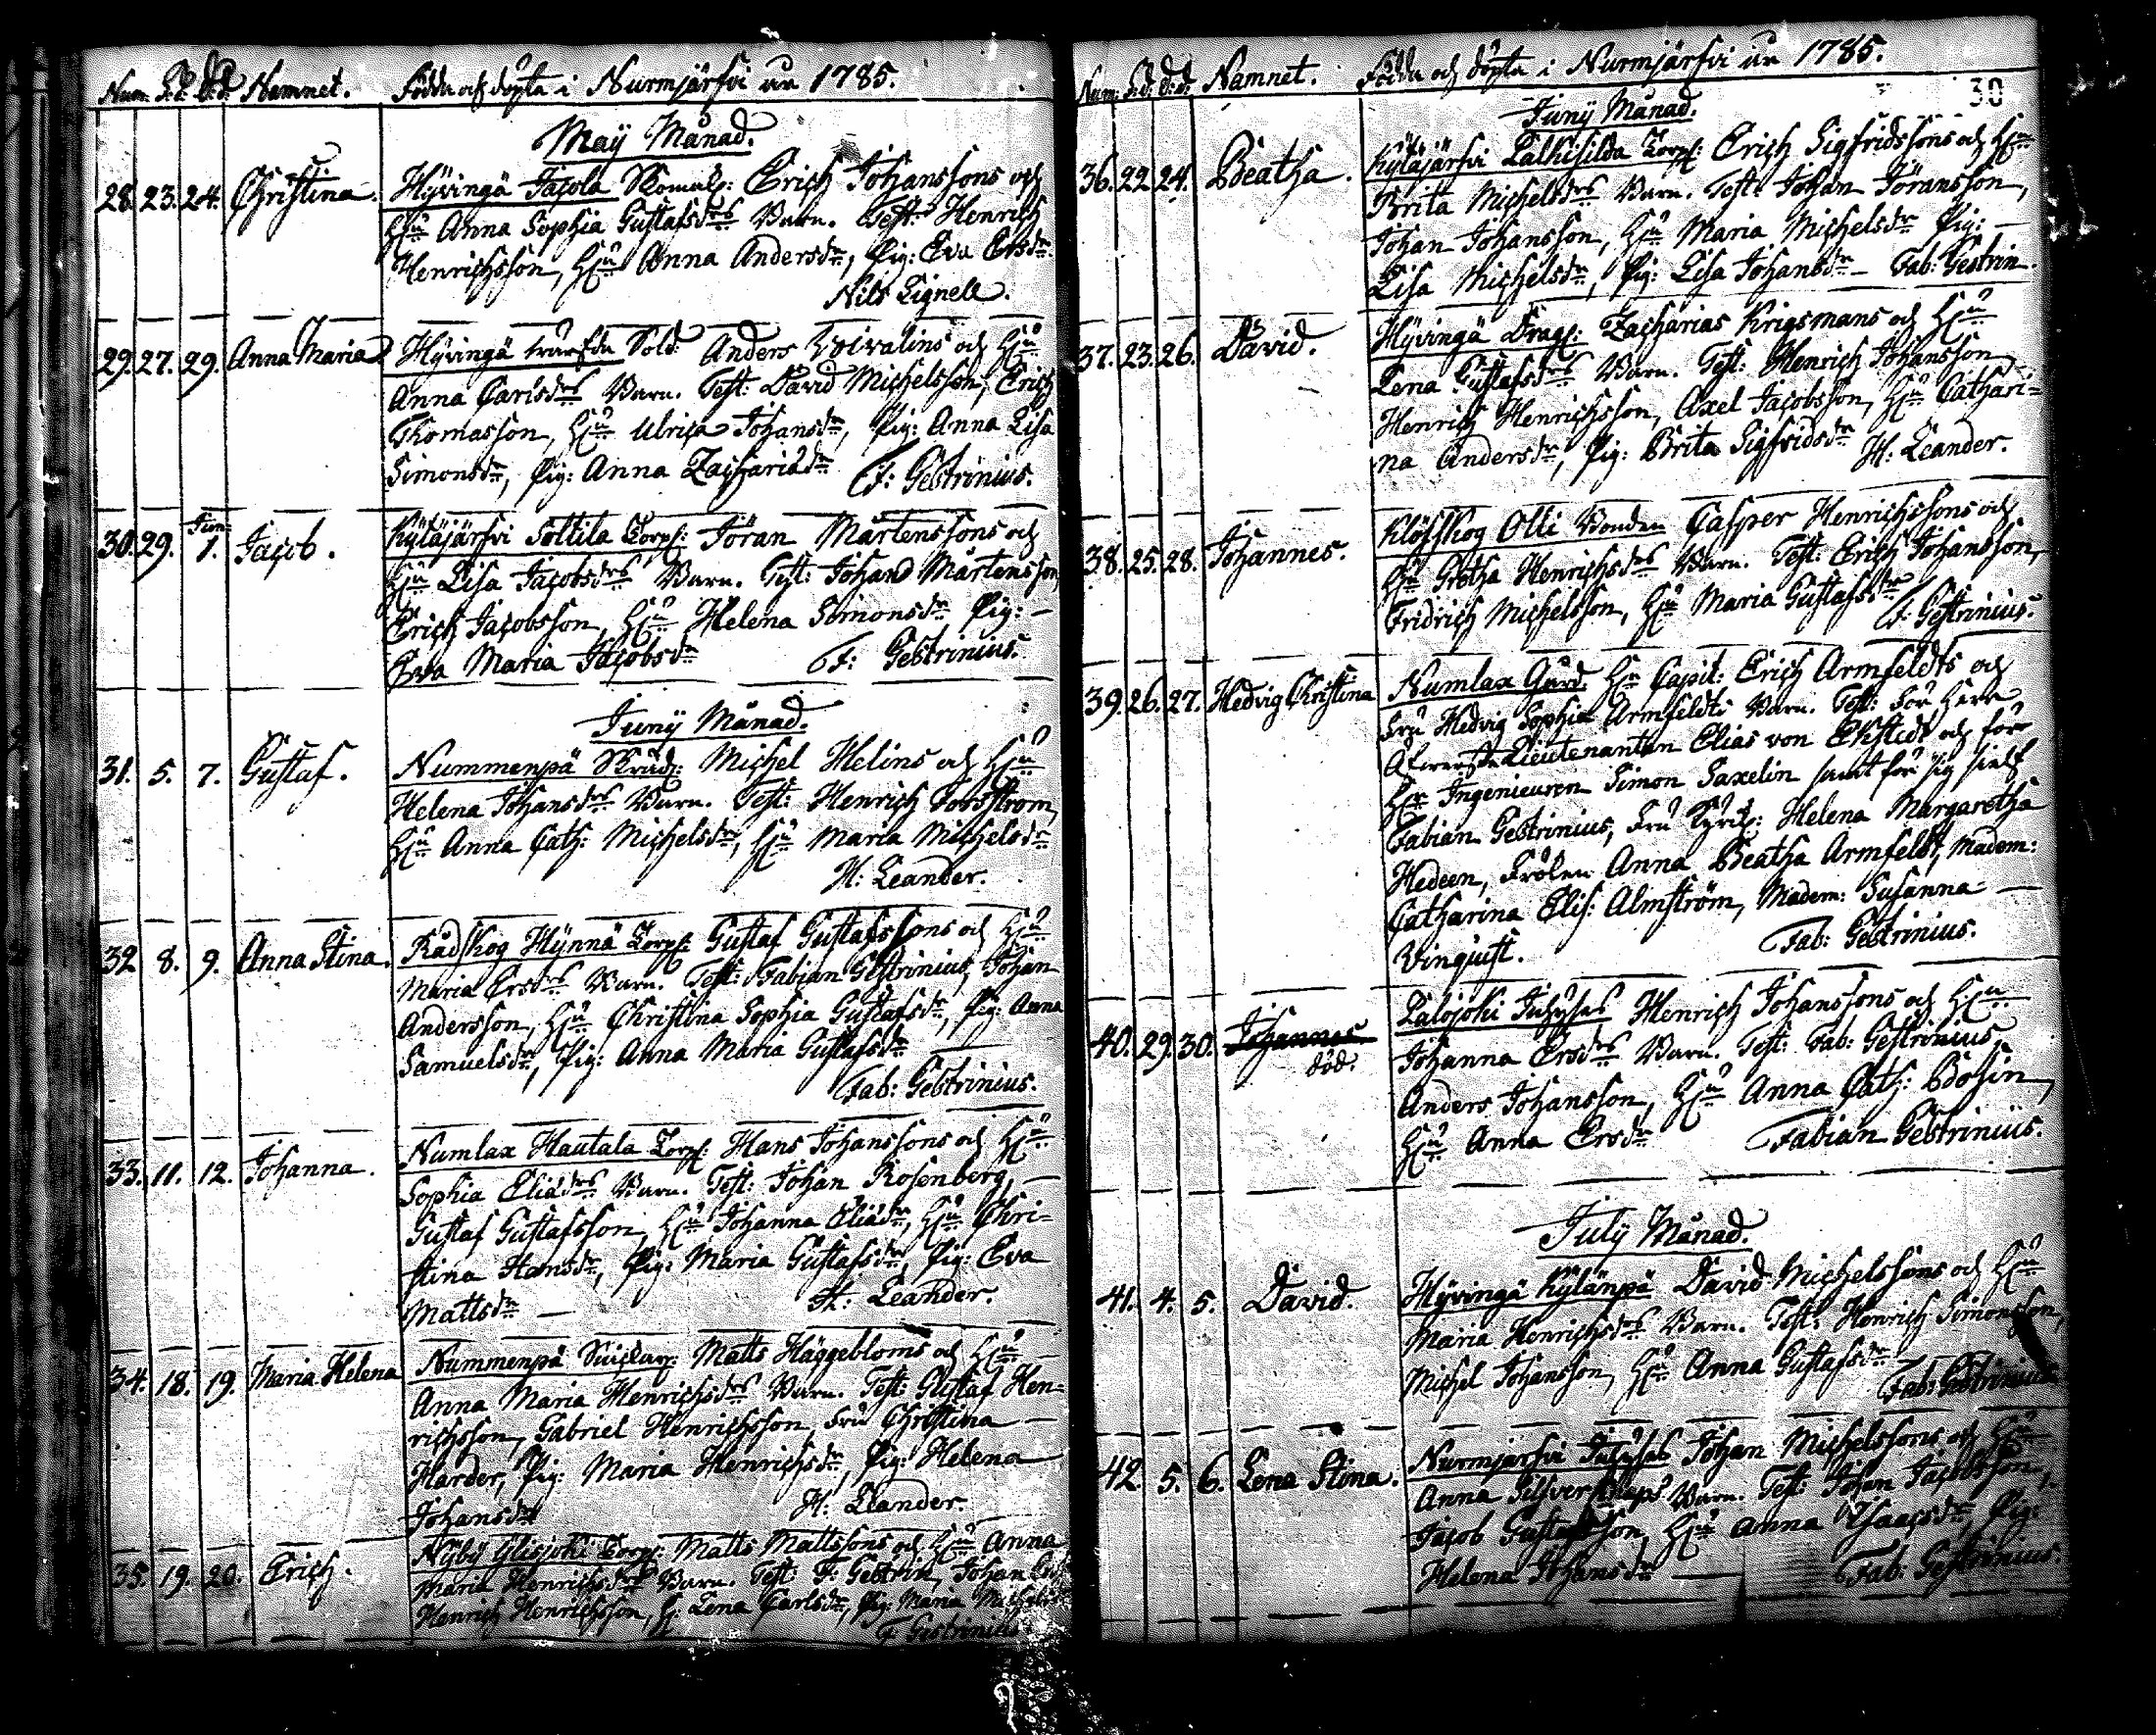 Num. F.d. D.d. Namnet. Födde och döpte i Nurmjärfvi år 1785.
May Månad.
28. 23. 24. Christina. Hyvingä Jacola Skomak: Erich Johanssons och
H:u Anna Sophia Gustafsdrs Barn. Test: Henrich
Henrichsson, H:u Anna Andersdr, Pig: Eva Ersdr.
Nils Lignell.
29. 27. 29. Anna Maria Hyvingä Sold: Anders Voivalins och H:u
Anna Carlsdrs Barn. Test: David Michelsson, Erich
Thomasson, H:u Ulrica Johansdr, Pig: Anna Lisa
Simonsdr, Pig: Anna Zachariädr F: Gestrinius.
30. 29. Jun: 1. Jacob. Kyläjärfvi Sottila Torp: Jöran Mårtenssons och
H:u Lisa Jacobsdrs Barn. Test: Johand Mårtensson,
Erich Jacobsson, H:u Helena Simonsdr Pig: —
Eva Maria Jacobsdr F: Gestrinius.
Juny Månad.
31. 5. 7. Gustaf. Nummenpä Skräd: Michel Helins och H:u
Helena Johansdrs Barn. Test: Henrich Forsström,
H:u Anna Cath: Michelsdr, H:u Maria Michelsdr
H: Leander.
32 8. 9. Anna Stina. Rådskog Hynnä Torp: Gustaf Gustafssons och H:u
Maria Ersdrs Barn. Test: Fabian Gestrinius, Johan
Andersson, H:u Christina Sophia Gustafsdr, Pig: Anna
Samuelsdr, Pig: Anna Maria Gustafsdr
Fab: Gestrinius.
33. 11. 12. Johanna. Numlax Hautala Torp: Hans Johanssons och H:u
Sophia Eliädrs Barn. Test: Johan Rosenberg, —
Gustaf Gustafsson, H:u Johanna Eliädr, H:u Chri-
stina Hansdr, Pig: Maria Gustafsdr, Pig: Eva
Mattsdr — H: Leander.
34. 18. 19. Maria Helena Nummenpä Matts Häggebloms och H:u —
Anna Maria Henrichsdrs Barn. Test: Gustaf Hen-
richsson, Gabriel Henrichsson, Fru Christina —
Harder, Pig: Maria Henrichsdr, Pig: Helena
Johansdr H: Leander.
35. 19. 20. Erich. Nyby Glisjoki Torp: Matts Mattssons och H:u Anna
Maria Henrichsdrs Barn. Test: F: Gestrin, Johan
Henrich Henrichsson, H: Lena Carlsdr, Pig: Maria Michelsdr
F Gestrinius
Num: F.d. D.d. Namnet. Födde och döpte i Nurmjärfvi år 1785.
30
Juny Månad.
36. 22 24. Beatha. Kyläjärfvi Lalhisilda Torp: Erich Sigfridssons och H:u
Brita Michelsdrs Barn. Test: Johan Jöransson,
Johan Johansson, H:u Maria Michelsdr Pig: —
Lisa Michelsdr, Pig: Lisa Johansdr — Fab: Gestrin.
37. 23. 26. David. Hyvingä Drag: Zacharias Krigsmans och H:u
Lena Gustafsdrs Barn. Test: Henrich Johansson,
Henrich Henrichsson, Axel Jacobsson, H:u Cathari-
na Andersdr, Pig: Brita Sigfridsdr H: Leander.
38. 25. 28. Johannes. Klöfskog Olli Bonden Casper Henrichssons och
H:u Gretha Henrichsdrs Barn. Test: Erich Johansson,
Fridrich Michelsson, H:u Maria Gustafsdr
F: Gestrinius.
39. 26. 27. Hedvig Christina Numlax Gård. H:r Capit: Erich Armfeldts och
Fru Hedvig Sophia Armfeldts Barn. Test: För Herr
Öfverste Lieutenanten Elias von Ekstedt och för
H:r Ingenieuren Simon Saxelin samt för sig sielf
Fabian Gestrinius, Fru Helena Margaretha
Hedeen, Fröken Anna Beatha Armfeldt, Madem:
Catharina Elis: Almström, Madem: Susanna —
Vinquist. Fab: Gestrinius.
40. 29. 30. Johannes. död. Palojoki Inhyses Henrich Johanssons och H:u
Johanna Ersdrs Barn. Test: Fab: Gestrinius,
Anders Johansson, H:u Anna Cath: Bohin,
H:u Anna Ersdr Fabian Gestrinius.
July Månad.
41. 4. 5. David. Hyvingä Kylänpä David Michelssons och H:u
Maria Henrichsdrs Barn. Test: Henrich Simonsson,
Michel Johansson, H:u Anna Gustafsdr —
Fab: Gestrinius
42 5. 6. Lena Stina. Nurmjärfvi Inhyses Johan Michelssons och H:u
Anna Barn. Test: Johan Jacobsson,
Jacob Gustafsson, H:u Anna Isaacsdr, Pig:
Helena Johansdr — Fab: Gestrinius.